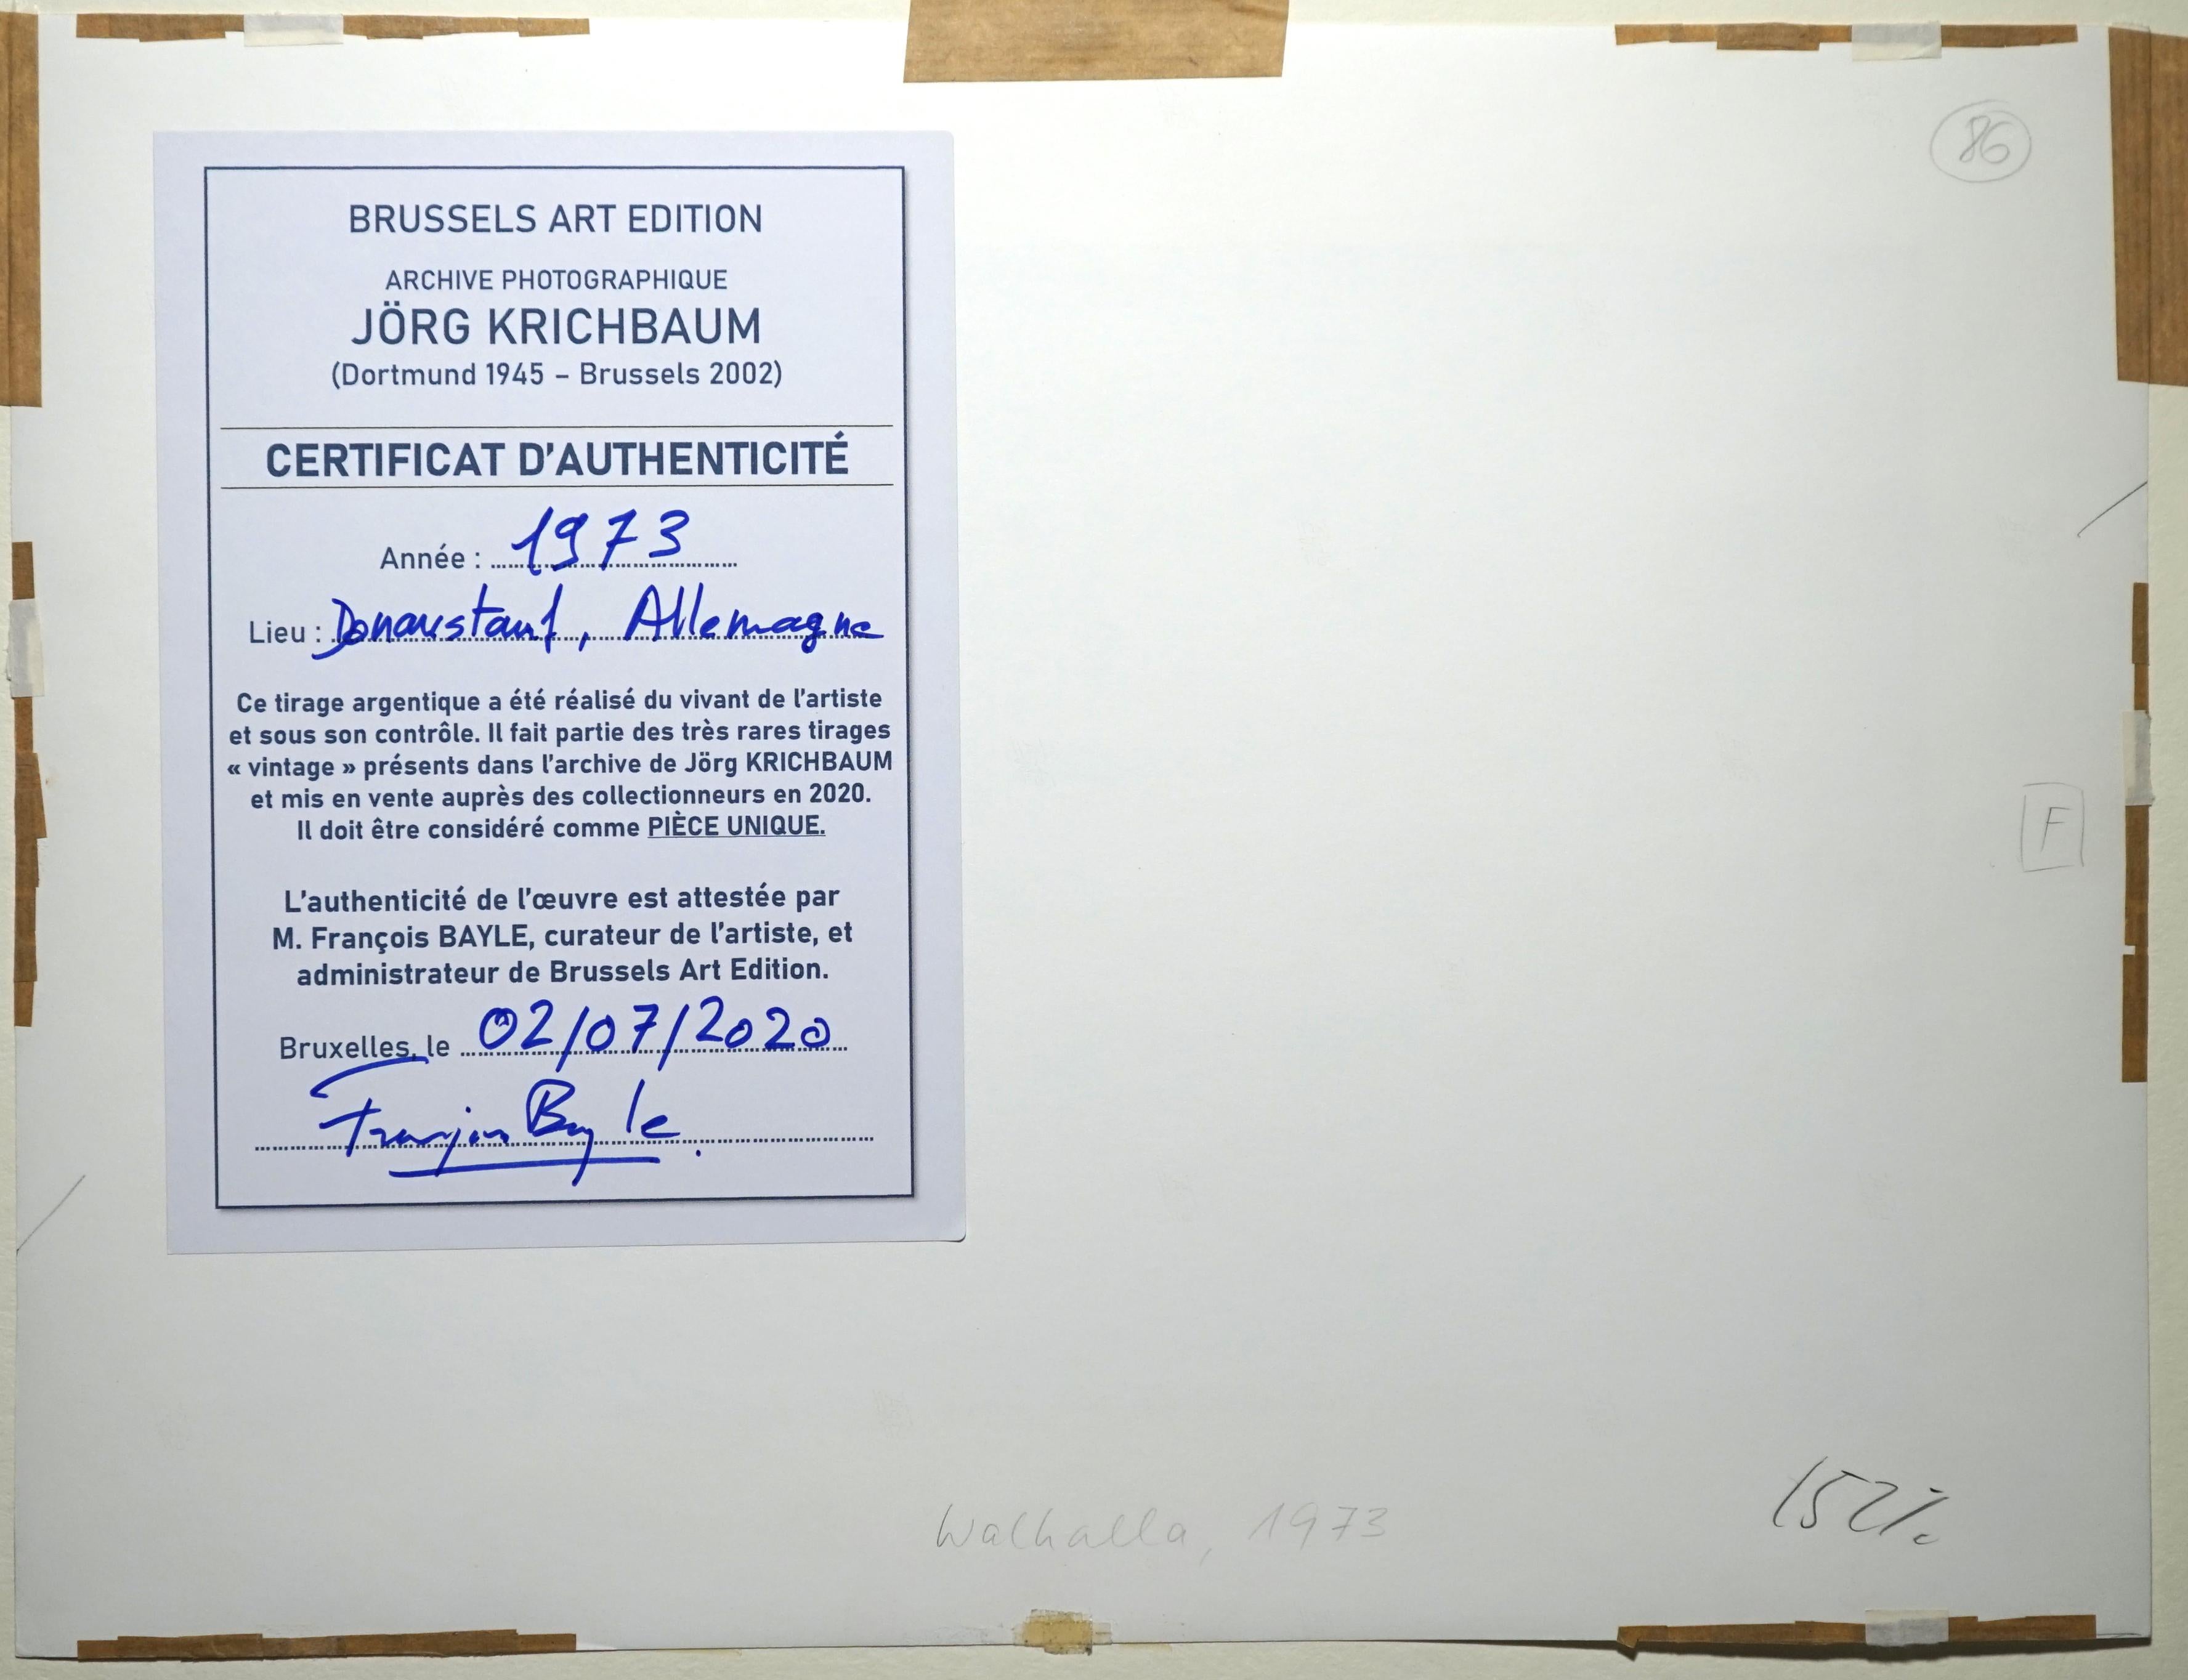 86
BRUSSELS ART EDITION
ARCHIVE PHOTOGRAPHIQUE
JÖRG KRICHBAUM
(Dortmund 1945 – Brussels 2002)
CERTIFICAT D'AUTHENTICITÉ
Année : 1973
Lieu : Donaustauf, Allemagne
Ce tirage argentique a été réalisé du vivant de l'artiste
et sous son contrôle. Il fait partie des très rares tirages
« vintage » présents dans l'archive de Jörg KRICHBAUM
et mis en vente auprès des collectionneurs en 2020.
Il doit être considéré comme PIÈCE UNIQUE.
F
L'authenticité de l'œuvre est attestée par
M. François BAYLE, curateur de l'artiste, et
administrateur de Brussels Art Edition.
Bruxelles, le 02/07/2020
François Bayle
Walhalla, 1973